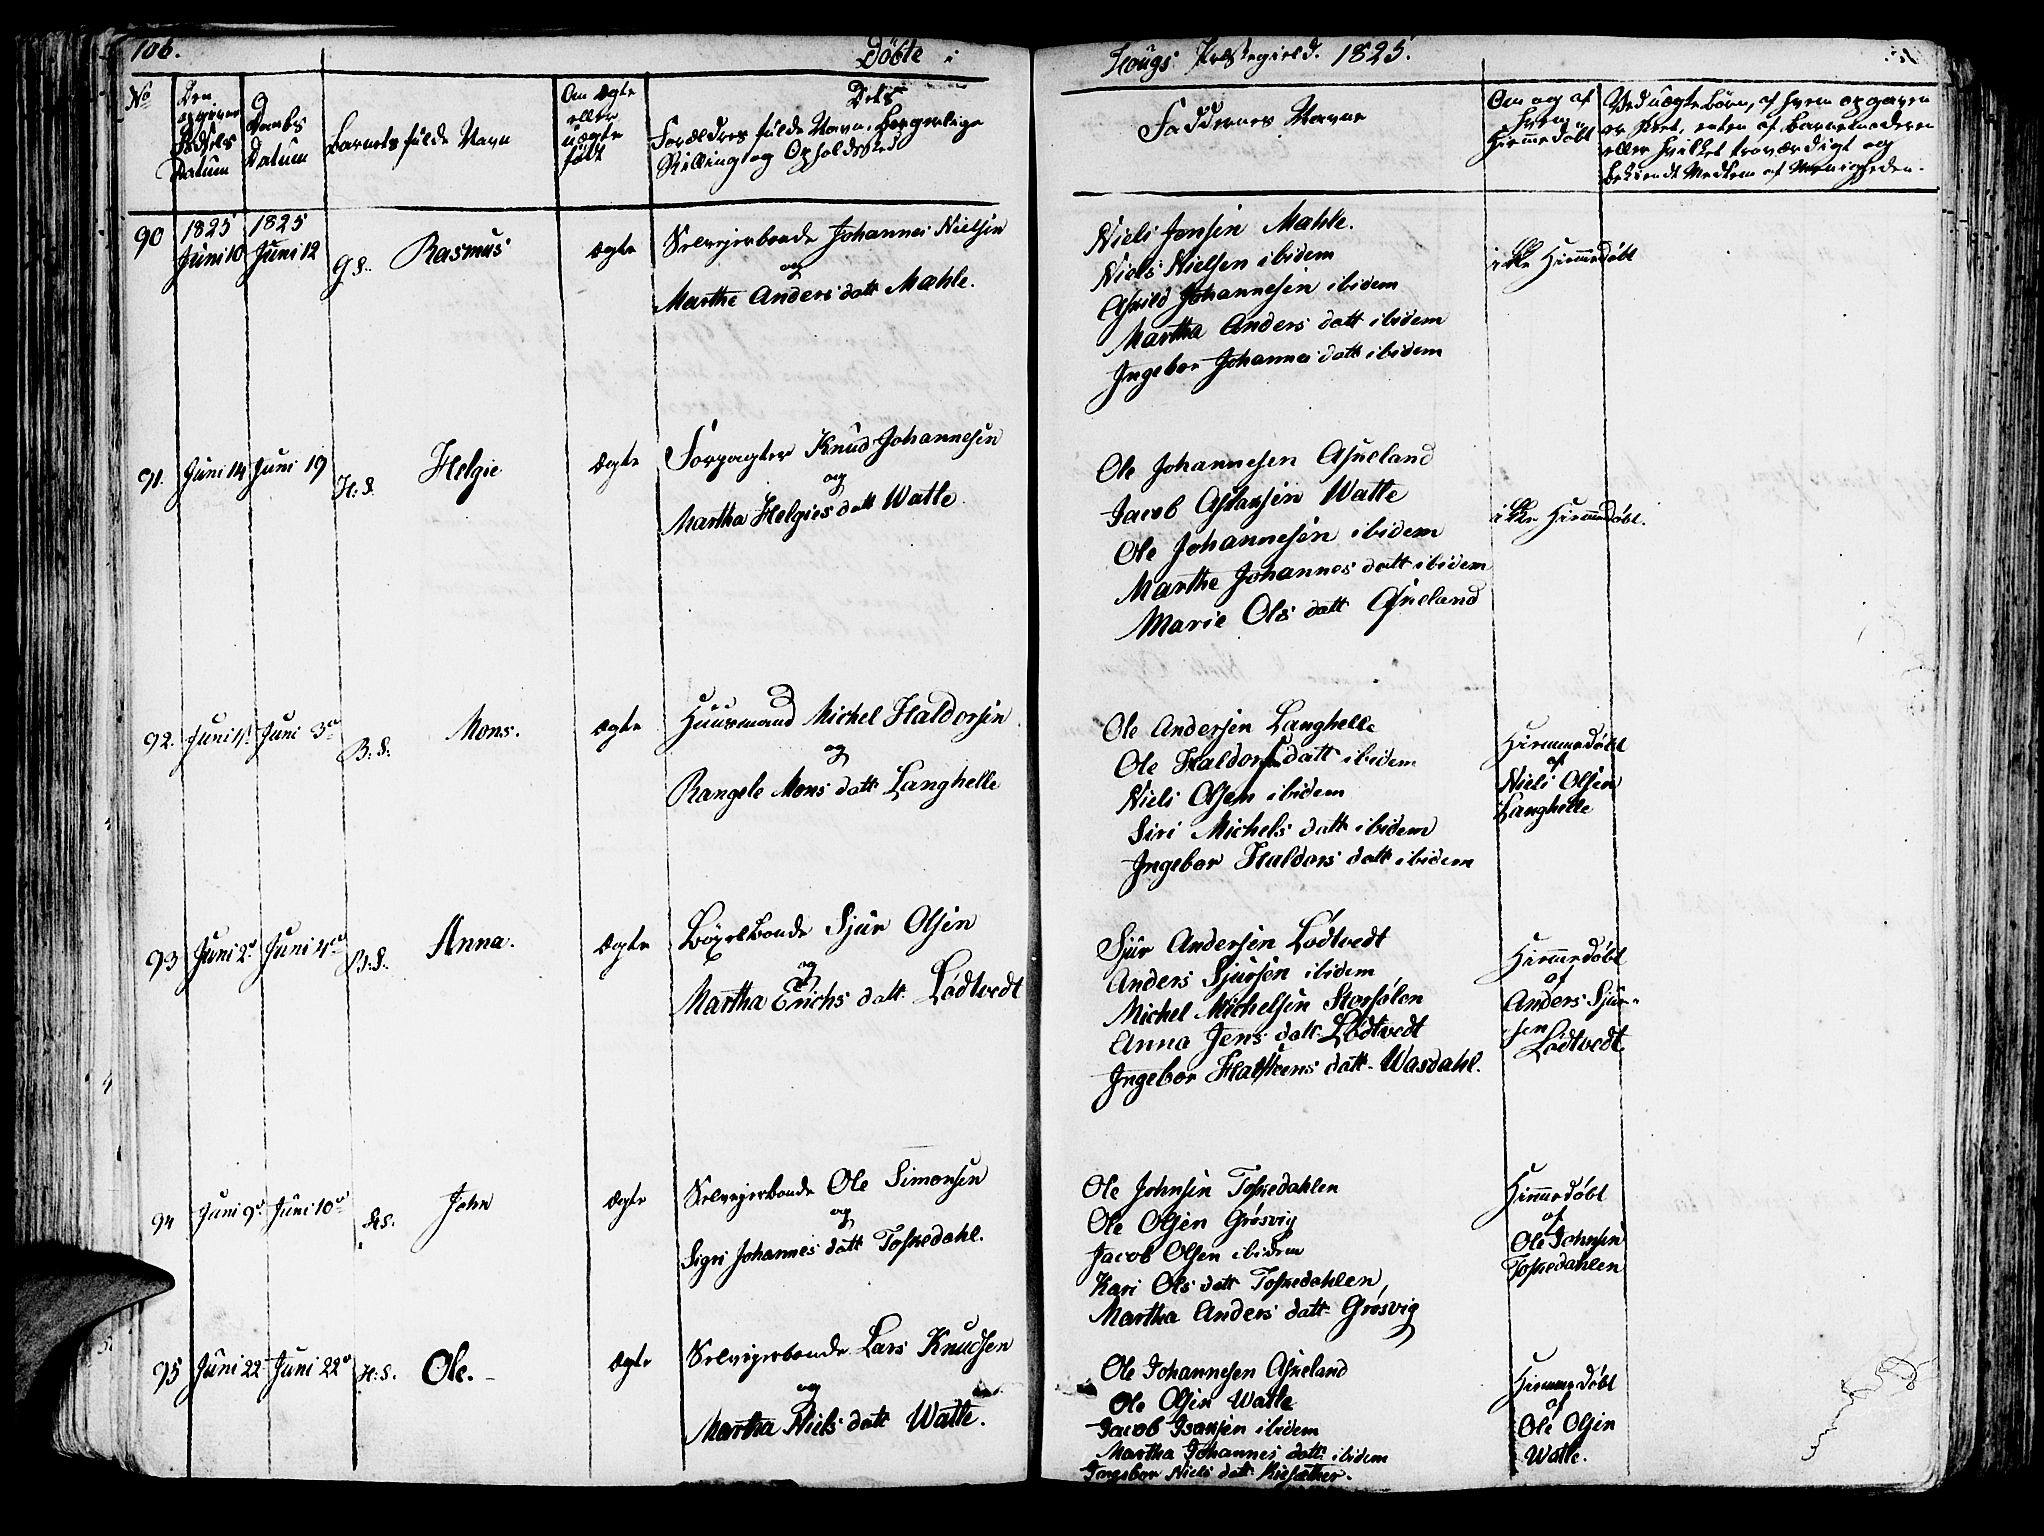 106. Döbte i Hougs Præstegield. 1825.
No
Den opgivne Fødsels Datum
Daabs Datum
Barnets fulde Navn
Om ægte eller uægte født
Dets Forældres fulde Navn, Borgerlige Stilling og Opholdssted
Faddernes Navne
Om og af hvem Hiemmedøbt
Ved uægte Børn, af hvem opgaven er skeet, enten af Barnemoderen eller hvilket troværdigt og bekiendt Medlem af Menigheden.
90 1825 Juni 10 1825 Juni 12 G.S. Rasmus ægte Selveierbonde Johannes Nielsen
og
Marthe Anders datt Mahle.
Niels Jensen Mahle.
Niels Nielsen ibidem
Johannesen ibidem
Martha Anders datt ibidem
Ingebor Johannes datt ibidem
ikke Hiemmedøbt
91. Juni 14 Juni 19 H:S. Helgie ægte Forpagter Knud Johannesen
og
Martha Helgies datt Watle.
Ole Johannesen Askeland
Jacob Watle
Ole Johannesen ibidem
Marthe Johannes datt ibidem
Marie Ols datt Askeland
ikke Hiemmedøbt.
92. Juni Juni 3 B:S: Mons. ægte Huusmand Michel Haldorsen
og
Rangele Mons datt Langhelle
Ole Andersen Langhelle
Ole Haldors datt ibidem
Niels Olsen ibidem
Siri Michels datt ibidem
Ingebor Haldors datt ibidem
Hiemmedøbt
af
Niels Olsen
Langhelle
93 Juni 2 Juni 4 B:S. Anna. ægte Böxelbonde Sjur Olsen
og
Martha Erichs datt Lødtvedt
Sjur Andersen Lødtvedt
Anders Sjursen ibidem
Michel Michelsen
Anna Jens datt Lødtvedt
Ingebor Halsteens datt Wasdahl.
Hiemmedøbt
af
Anders Sjur-
sen
Lødtvedt
94 Juni 9 Juni 10 John ægte Selveierbonde Ole Simonsen
og
Sigri Johannes datt Toskedahl.
Ole Johnsen Toskedahlen
Ole Olsen Grøsvig
Jacob Olsen ibidem
Kari Ols datt Toskedahlen,
Martha Anders datt Grøsvig
Hiemmedøbt
af
Ole Johnsen
Toskedahlen
95 Juni 22 Juni 22 H:S. Ole. ægte Selveierbonde Lars Knudsen
og
Martha Niels datt Watle.
Ole Johannesen Askeland
Ole Olsen Watle
Jacob Isaksen ibidem
Martha Johannes datt ibidem
Ingebor Niels datt
Hiemmedøbt
af
Ole Olsen
Watle.